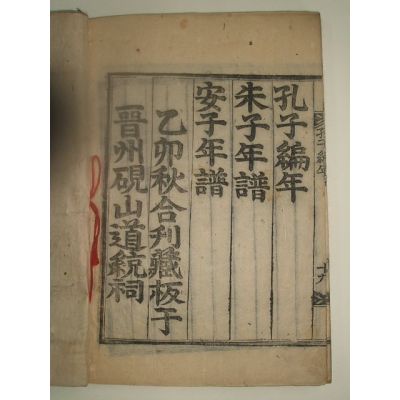 孔子編年
朱子年譜
安子年譜
乙卯秋合刊藏板于
晋州硯山道統祠
孔子編年